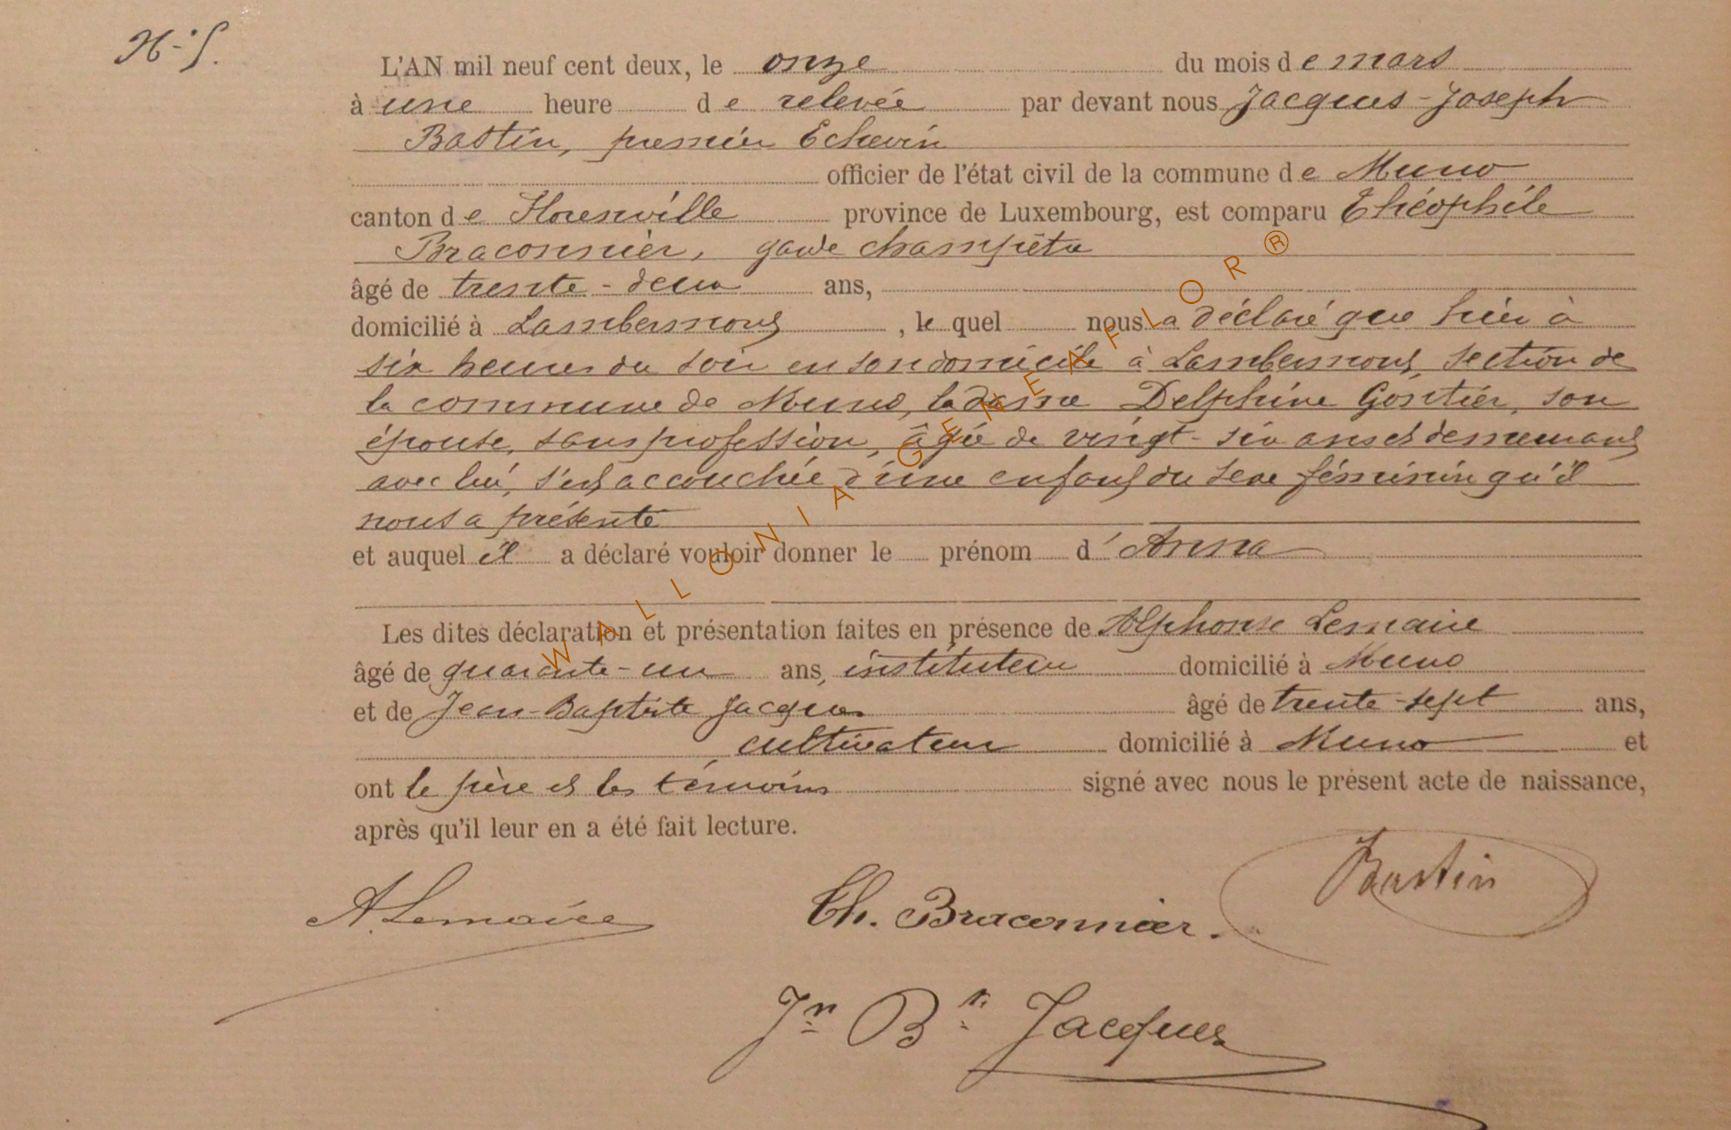 N° 5.
L'AN mil neuf cent deux, le onze du mois de mars
à une heure de relevée par devant nous Jacques-Joseph
Bastin, premier Echevin
officier de l'état civil de la commune de Muno
canton de Florenville province de Luxembourg, est comparu Théophile
Braconnier, garde champêtre
âgé de trente-deux ans,
domicilié à Lambermont, le quel nous a déclaré que hier à
six heures du soir en son domicile à Lambermont, section de
la commune de Muno, la dame Delphine Gontier, son
épouse, sans profession, âgée de vingt-six ans et demeurant
avec lui, s'est accouchée d'une enfant du sexe féminin qu'il
nous a présenté
et auquel il a déclaré vouloir donner le prénom d'Anna
Les dites déclaration et présentation faites en présence de Alphonse Lemaire
âgé de quarante-un ans, instituteur domicilié à Muno
et de Jean-Baptiste Jacques âgé de trente-sept ans,
cultivateur domicilié à Muno et
ont le père et les témoins signé avec nous le présent acte de naissance,
après qu'il leur en a été fait lecture.
Bastin
A. Lemaire Th. Braconnier.
Jn Bte Jacques
WALLONIA GENEAFLOR®